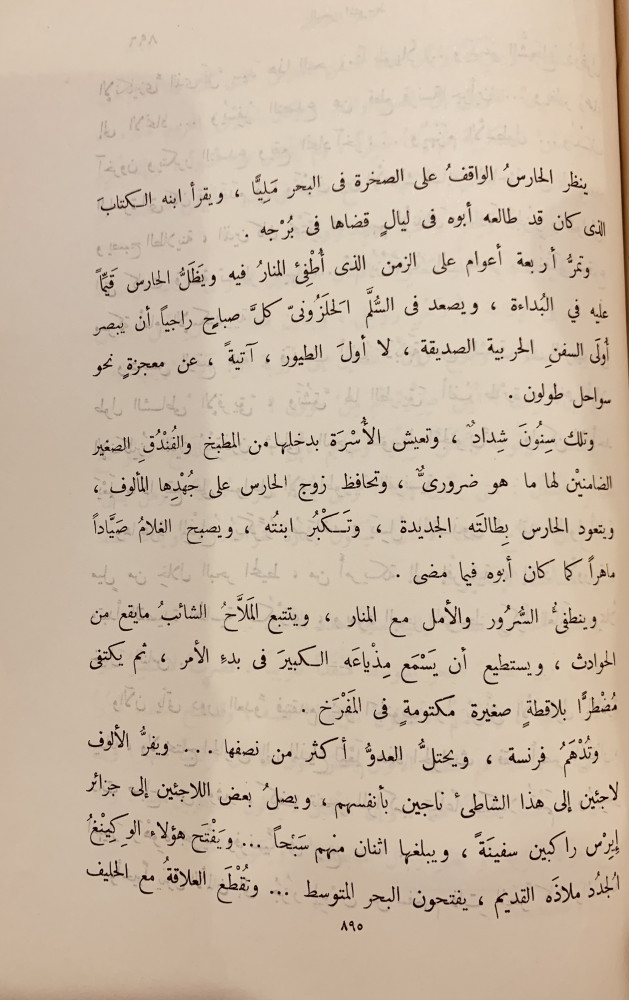 ينظر الحارسُ الواقفُ على الصخرة فى البحر مَلِيًّا ، ويقرأ ابنه الكتابَ
الذى كان قد طالعه أبوه فى ليالٍ قضاها فى بُرْجه .
وتمرُّ أربعة أعوام على الزمن الذى أُطْفِئ المنارُ فيه ويَظَلُّ الحارس قَيِّمًا
عليه في البُداءة ، ويصعد فى السُّلَّم الحَلَزُونىّ كلَّ صباحٍ راجياً أن يبصر
أُولَى السفنِ الحربية الصديقة ، لا أولَ الطيور ، آتيةً ، عن معجزةٍ نحو
سواحل طولون .
وتلك سِنُونَ شِدادٌ ، وتعيش الأُسْرَة بدخلها من المطبخ والفُنْدُقِ الصغير
الضامنيْن لها ما هو ضرورىٌّ ، وتحافظ زوج الحارس على جُهْدِها المألوف ،
ويتعود الحارس بِطالَته الجديدة ، وتَكْبُر ابنتُه ، ويصبح الغلامُ صَيَّاداً
ماهراً كما كان أبوه فيما مضى .
وينطفئُ السُّرُور والأمل مع المنار ، ويتتبع المَلَّاحُ الشائبُ مايقع من
الحوادث ، ويستطيع أن يَسْمَع مِذْياعَه الكبيرَ فى بدءِ الأمر ، ثم يكتفى
مُضْطرًّا بلاقطةٍ صغيرة مكتومةٍ فى المَفْرَخ .
وتُدْهَمُ فرنسة ، ويحتلُّ العدوُّ أكثر من نصفها ... ويفرُّ الألوف
لاجئين إلى هذا الشاطئ ناجين بأنفسهم ، ويصلُ بعض اللاجئين إلى جزائر
إيرِسْ راكبين سفينَةً ، ويبلغها اثنان منهم سَبْحاً ... ويَفْتَح هؤلاء الوِكِينْغُ
الجُدُد ملاذَه القديم ، يفتحون البحر المتوسط ... وتُقْطَع العلاقةُ مع الحليف
٨٩٥